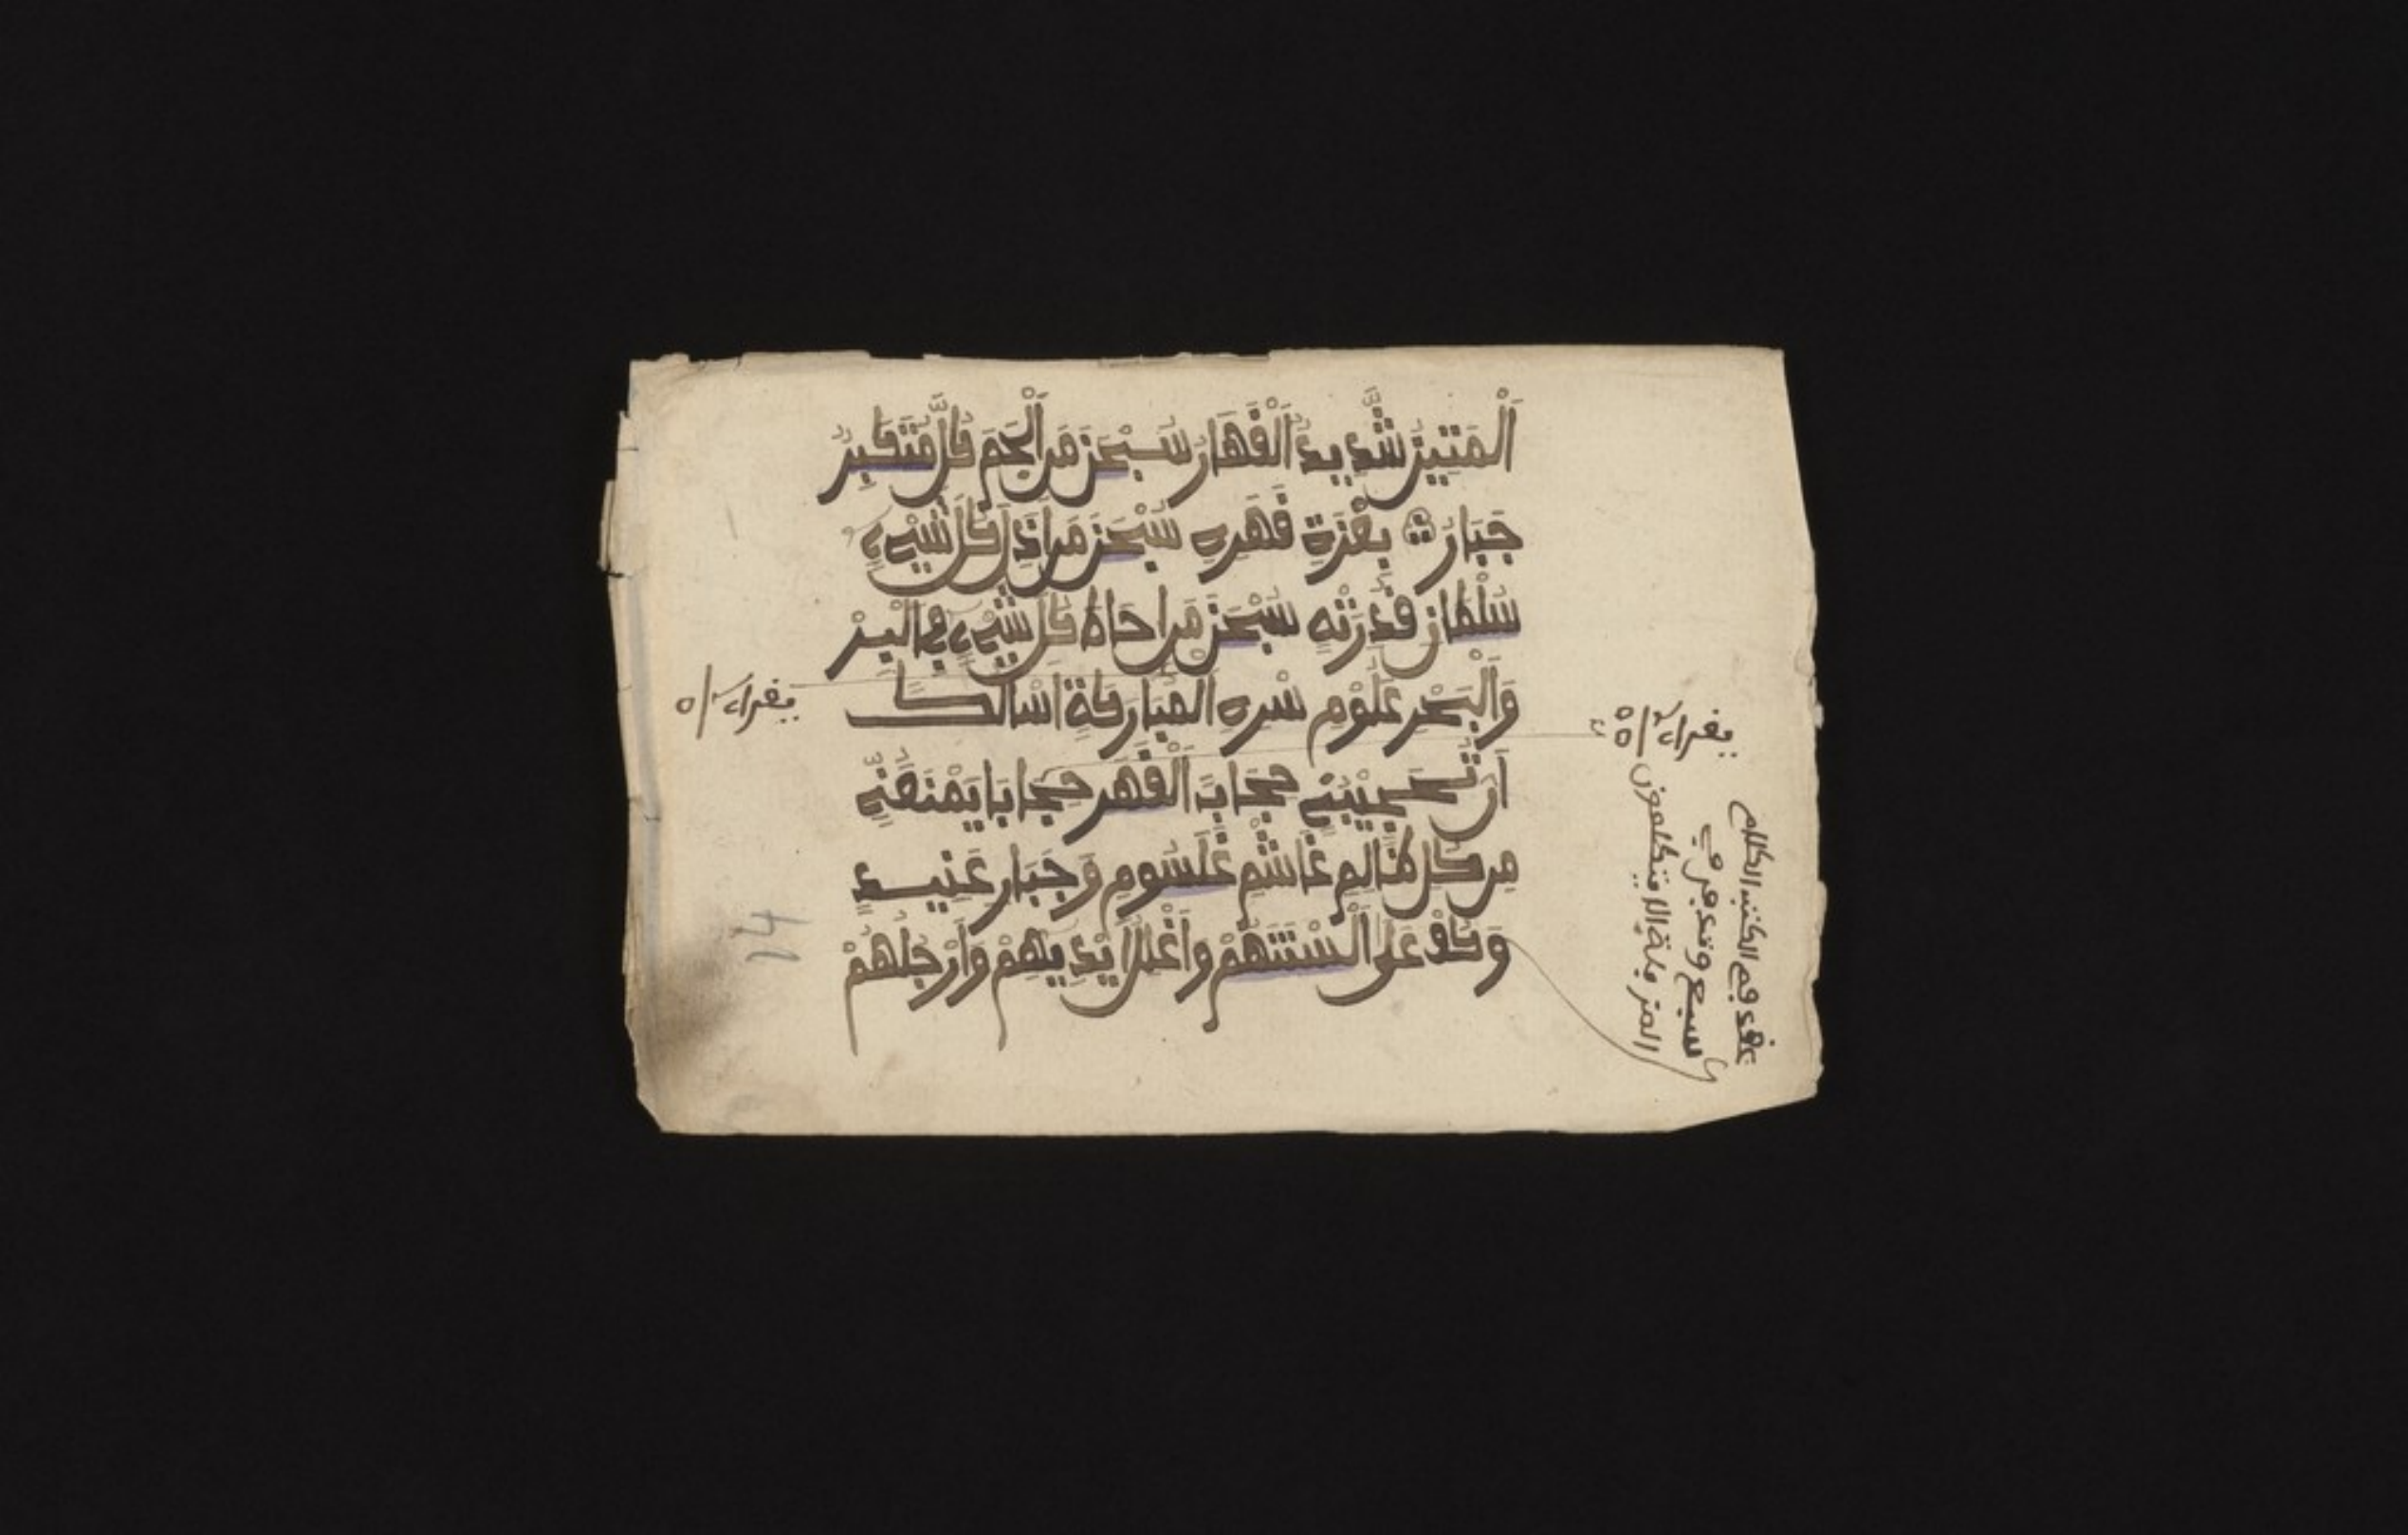 اَلْمَتِينُ شَّدِيدُ اَلْقَهَارُ سُبْحَنَ مَن اَلْجَمَ كُلَّ مُتَكَبِرٍ
جَبَارٍ بِعْزَةِ قَهْرِهِ سُبْحَنَ مَن اَذَلَّ كُلَّ شَيْءٍ
سُلْطَانِ قُدْرَتِهِ سُبْحَنَ مَن احَاطَ كُلَّ شَيْءٍ فِي الْبِرْ
وَالْبَحْرِ عُلُوْمِ سْرِهِ الْمُبَارَكَةِ اَسْالُكَ
اَن تُحْجِيْبَنِي حِجَابَ اَلْقَهْرِ حِجَابَا يَمْنَعُنِّي
مِن كُلِ ظَالِمٍ غَاشْمٍ غَلَشُومٍ وَجَبَارٍ عَنِيدٍ
وَكُفْ عَلَى اَلْسْنَتَهُمْ وَاَغْلُلْ اَيْدِيهِمْ وَاَرْجُلَهُمْ
يقرا
يقرا
عقد فم الكتب الكلام
سبع